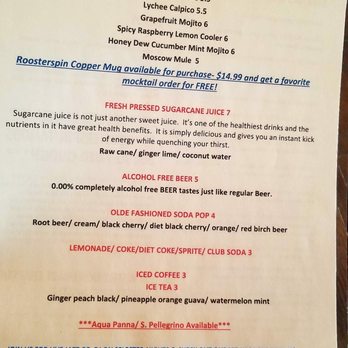 Lychee Calpico 5.5
Grapefruit Mojito 6
Spicy Raspberry Lemon Cooler 6
Honey Dew Cucumber Mint Mojito 6
Moscow Mule 5
Roosterspin Copper Mug available for purchase- $14.99 and get a favorite
mocktail order for FREE!
FRESH PRESSED SUGARCANE JUICE 7
Sugarcane juice is not just another sweet juice. It's one of the healthiest drinks and the
nutrients in it have great health benefits. It is simply delicious and gives you an instant kick
of energy while quenching your thirst.
Raw cane/ ginger lime/ coconut water
ALCOHOL FREE BEER 5
0.00% completely alcohol free BEER tastes just like regular Beer.
OLDE FASHIONED SODA POP 4
Root beer/ cream/ black cherry/ diet black cherry/ orange/ red birch beer
LEMONADE/ COKE/DIET COKE/SPRITE/ CLUB SODA 3
ICED COFFEE 3
ICE TEA 3
Ginger peach black/ pineapple orange guava/ watermelon mint
***Aqua Panna/ S. Pellegrino Available***